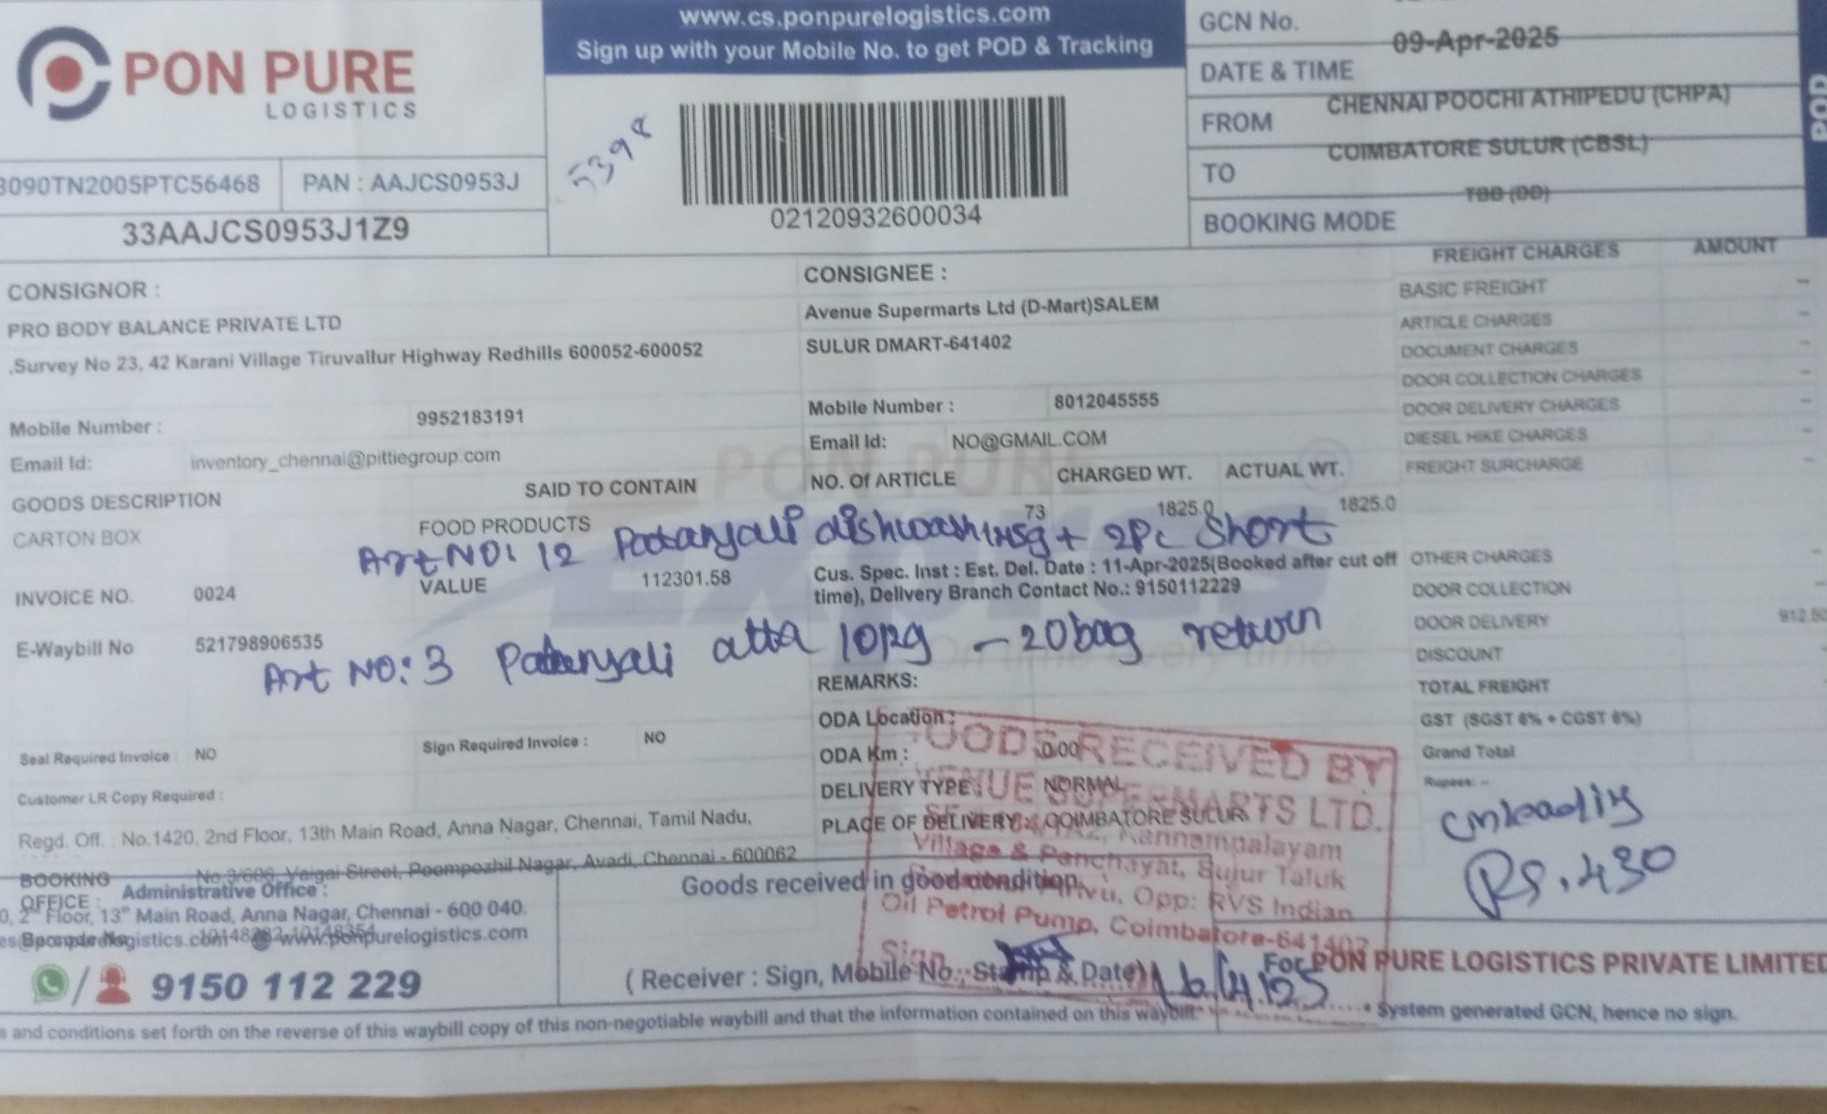 PON PURE
LOGISTICS
www.cs.ponpurelogistics.com
Sign up with your Mobile No. to get POD & Tracking
5398
02120932600034
GCN No.
09-Apr-2025
DATE & TIME
CHENNAI POOCHI ATHIPEDU (CHPA)
FROM
COIMBATORE SULUR (CBSL)
TO
TBB (DD)
BOOKING MODE
POD
3090TN2005PTC56468 PAN : AAJCS0953J
33AAJCS0953J1Z9
CONSIGNOR :
PRO BODY BALANCE PRIVATE LTD
,Survey No 23, 42 Karani Village Tiruvallur Highway Redhills 600052-600052
Mobile Number : 9952183191
Email Id: inventory_chennai@pittiegroup.com
CONSIGNEE :
Avenue Supermarts Ltd (D-Mart)SALEM
SULUR DMART-641402
Mobile Number : 8012045555
Email Id: NO@GMAIL.COM
GOODS DESCRIPTION SAID TO CONTAIN NO. Of ARTICLE CHARGED WT. ACTUAL WT.
CARTON BOX FOOD PRODUCTS 73 1825.0 1825.0
Art NO: 12 Patanjali dishwash 2Pc Short
INVOICE NO. 0024 VALUE 112301.58
Cus. Spec. Inst : Est. Del. Date : 11-Apr-2025(Booked after cut off
time), Delivery Branch Contact No.: 9150112229
E-Waybill No 521798906535
Art NO: 3 Patanjali atta 10kg - 20bag return
REMARKS:
ODA Location :
ODA Km : 0.00
DELIVERY TYPE : NORMAL
PLACE OF DELIVERY : COIMBATORE SULUR
Seal Required Invoice : NO Sign Required Invoice : NO
Customer LR Copy Required :
Regd. Off. : No.1420, 2nd Floor, 13th Main Road, Anna Nagar, Chennai, Tamil Nadu,
No.3/686, Vaigai Street, Poompozhil Nagar, Avadi, Chennai - 600062
BOOKING
OFFICE :
Administrative Office :
0, 2nd Floor, 13th Main Road, Anna Nagar, Chennai - 600 040.
www.ponpurelogistics.com
9150 112 229
FREIGHT CHARGES AMOUNT
BASIC FREIGHT -
ARTICLE CHARGES -
DOCUMENT CHARGES -
DOOR COLLECTION CHARGES -
DOOR DELIVERY CHARGES -
DIESEL HIKE CHARGES -
FREIGHT SURCHARGE -
OTHER CHARGES -
DOOR COLLECTION -
DOOR DELIVERY 912.50
DISCOUNT
TOTAL FREIGHT
GST (SGST 6% + CGST 6%)
Grand Total
Rupees: -
unloading
Rs. 430
GOODS RECEIVED BY
AVENUE SUPERMARTS LTD.
Kannampalayam
Village & Panchayat, Sulur Taluk
Opp: RVS Indian
Oil Petrol Pump, Coimbatore-641402
Sign
Goods received in good condition,
(Receiver : Sign, Mobile No., Stamp & Date)
16/4/25
For PON PURE LOGISTICS PRIVATE LIMITED
* System generated GCN, hence no sign.
and conditions set forth on the reverse of this waybill copy of this non-negotiable waybill and that the information contained on this waybill.